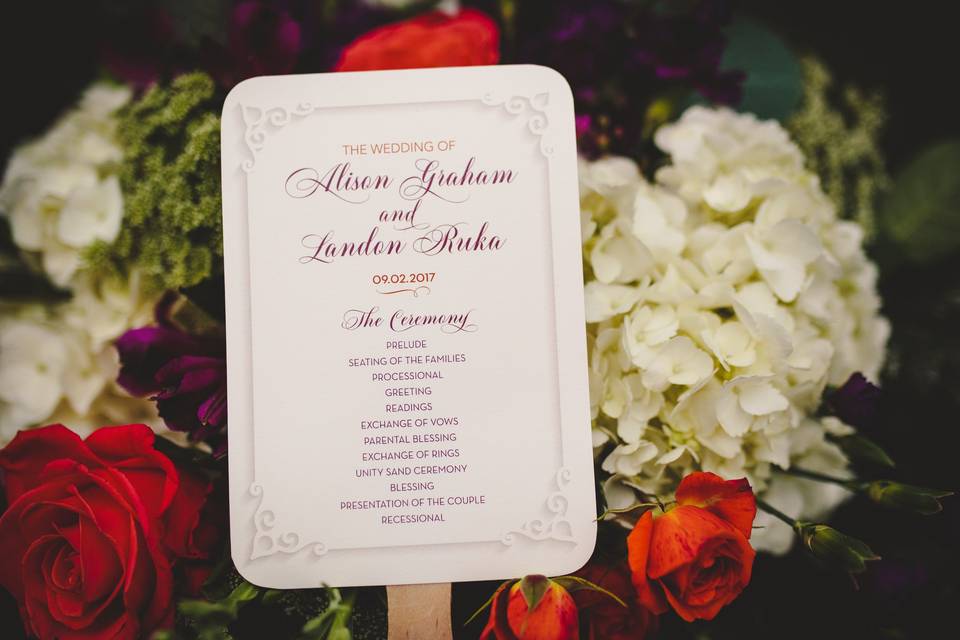 THE WEDDING OF
Alison Graham
and
Landon Ruka
09.02.2017
The Ceremony
PRELUDE
SEATING OF THE FAMILIES
PROCESSIONAL
GREETING
READINGS
EXCHANGE OF VOWS
PARENTAL BLESSING
EXCHANGE OF RINGS
UNITY SAND CEREMONY
BLESSING
PRESENTATION OF THE COUPLE
RECESSIONAL